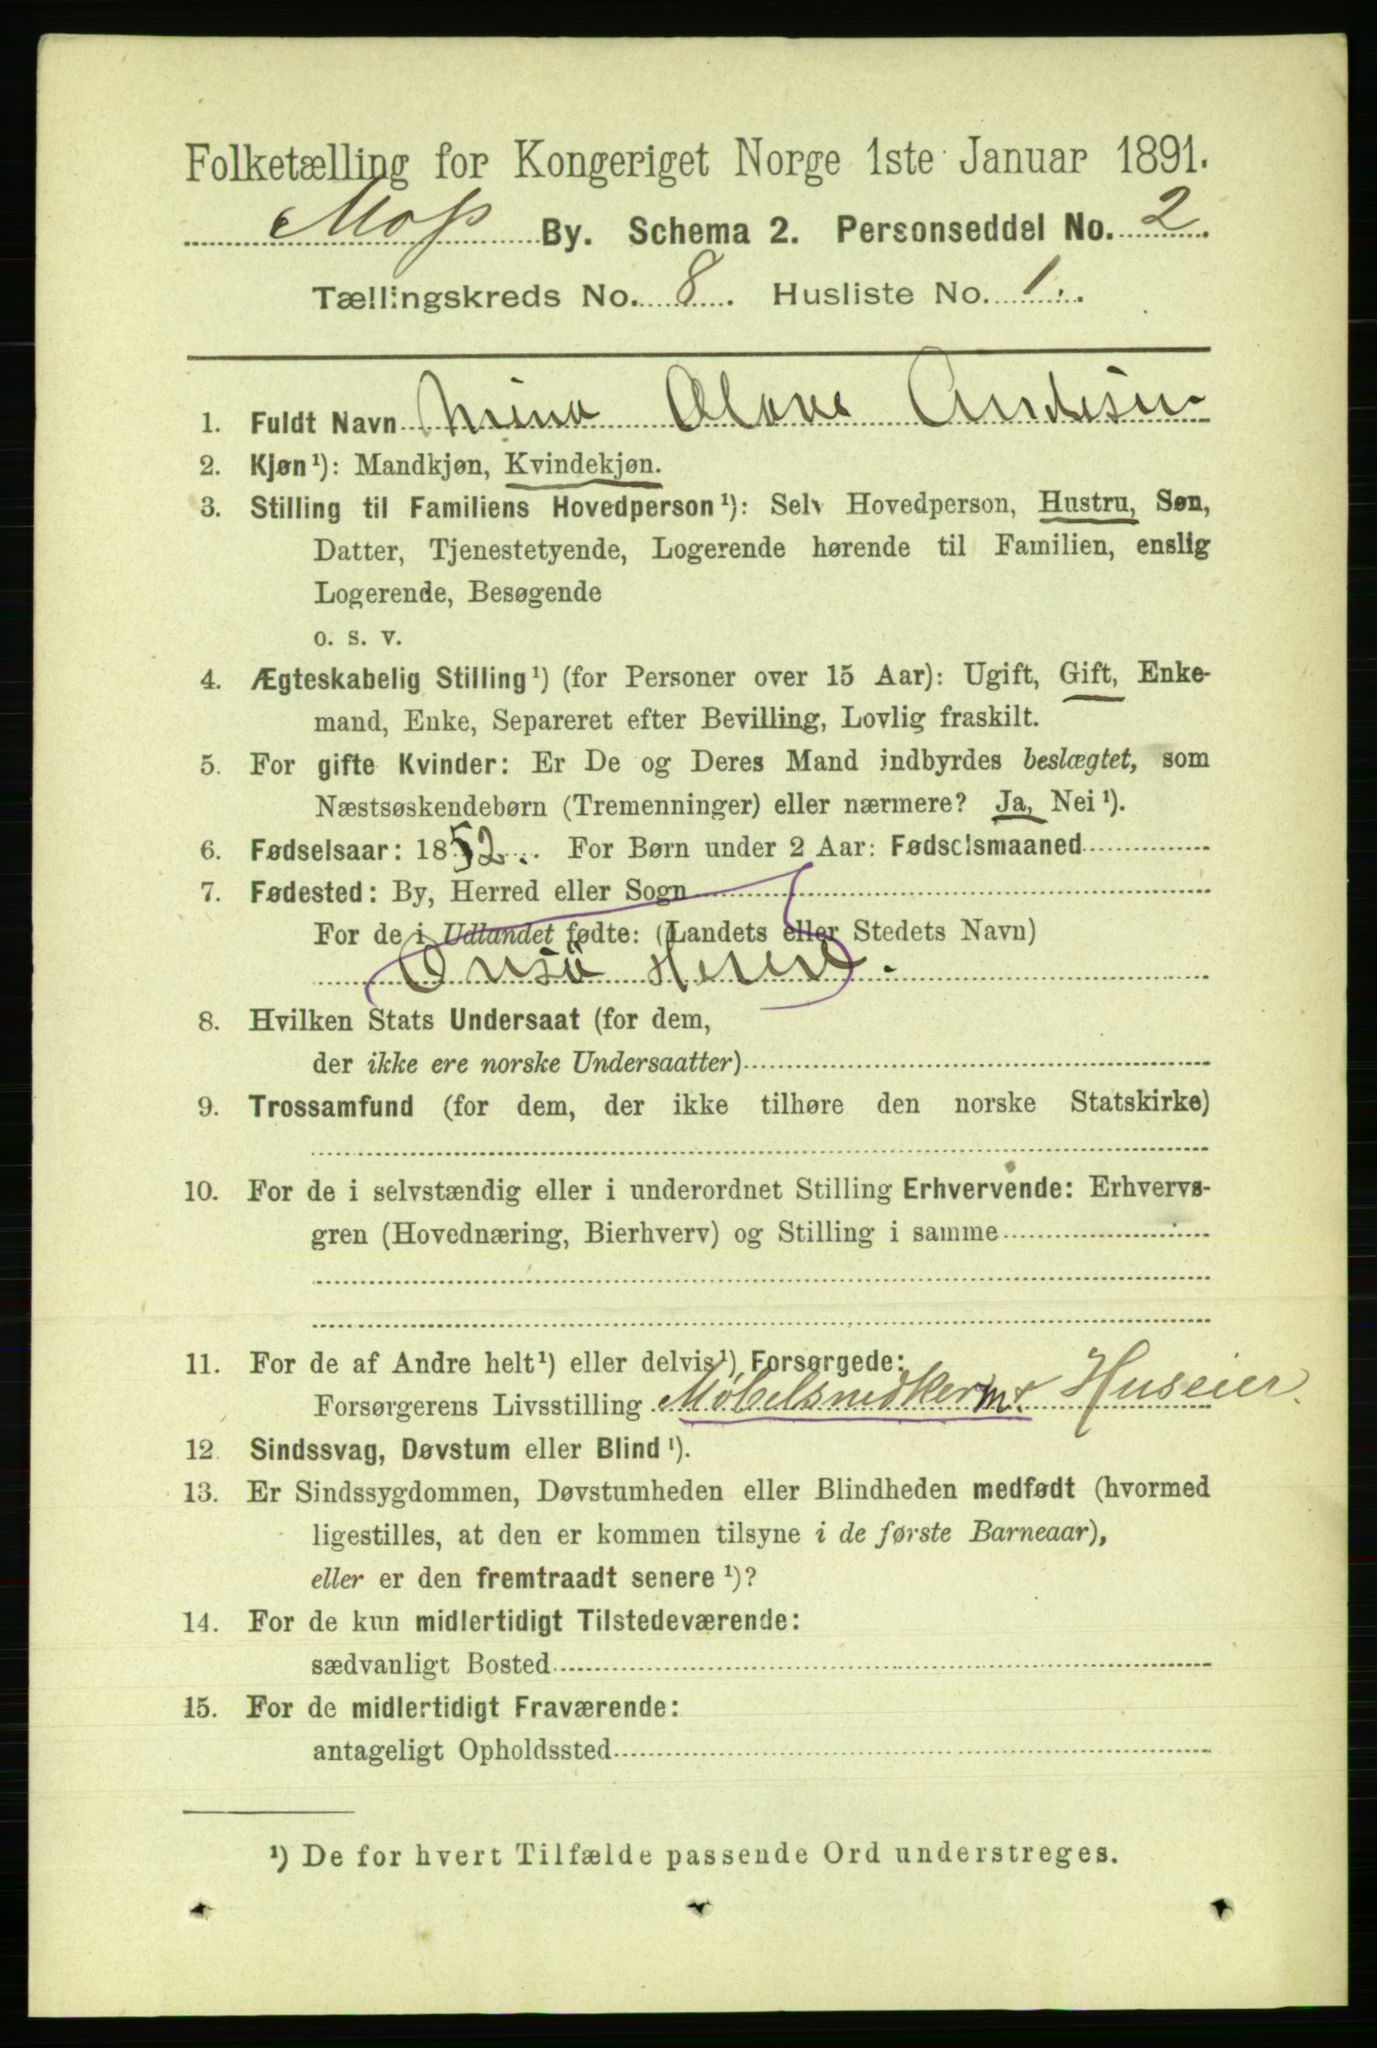 Folketælling for Kongeriget Norge 1ste Januar 1891.
Moss By. Schema 2. Personseddel No. 2.
Tællingskreds No. 8. Husliste No. 1.
1. Fuldt Navn Mina Olava Andersen
2. Kjøn¹): Mandkjøn, Kvindekjøn.
3. Stilling til Familiens Hovedperson¹): Selv Hovedperson, Hustru, Søn,
Datter, Tjenestetyende, Logerende hørende til Familien, enslig
Logerende, Besøgende
o. s. v.
4. Ægteskabelig Stilling¹) (for Personer over 15 Aar): Ugift, Gift, Enke-
mand, Enke, Separeret efter Bevilling, Lovlig fraskilt.
5. For gifte Kvinder: Er De og Deres Mand indbyrdes beslægtet, som
Næstsøskendebørn (Tremenninger) eller nærmere? Ja, Nei¹).
6. Fødselsaar: 1852. For Børn under 2 Aar: Fødselsmaaned
7. Fødested: By, Herred eller Sogn
For de i Udlandet fødte: (Landets eller Stedets Navn)
Onsö Herred.
8. Hvilken Stats Undersaat (for dem,
der ikke ere norske Undersaatter)
9. Trossamfund (for dem, der ikke tilhøre den norske Statskirke)
10. For de i selvstændig eller i underordnet Stilling Erhvervende: Erhvervs-
gren (Hovednæring, Bierhverv) og Stilling i samme
11. For de af Andre helt¹) eller delvis¹) Forsørgede:
Forsørgerens Livsstilling Møbelsnedkerm. Huseier
12. Sindssvag, Døvstum eller Blind¹).
13. Er Sindssygdommen, Døvstumheden eller Blindheden medfødt (hvormed
ligestilles, at den er kommen tilsyne i de første Barneaar),
eller er den fremtraadt senere¹)?
14. For de kun midlertidigt Tilstedeværende:
sædvanligt Bosted
15. For de midlertidigt Fraværende:
antageligt Opholdssted
¹) De for hvert Tilfælde passende Ord understreges.